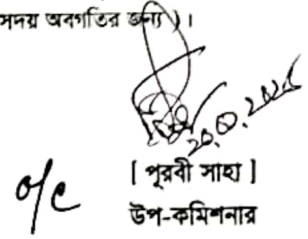 সদয় অবগতির জন্য)।
o/c
[ পূরবী সাহা ]
উপ-কমিশনার